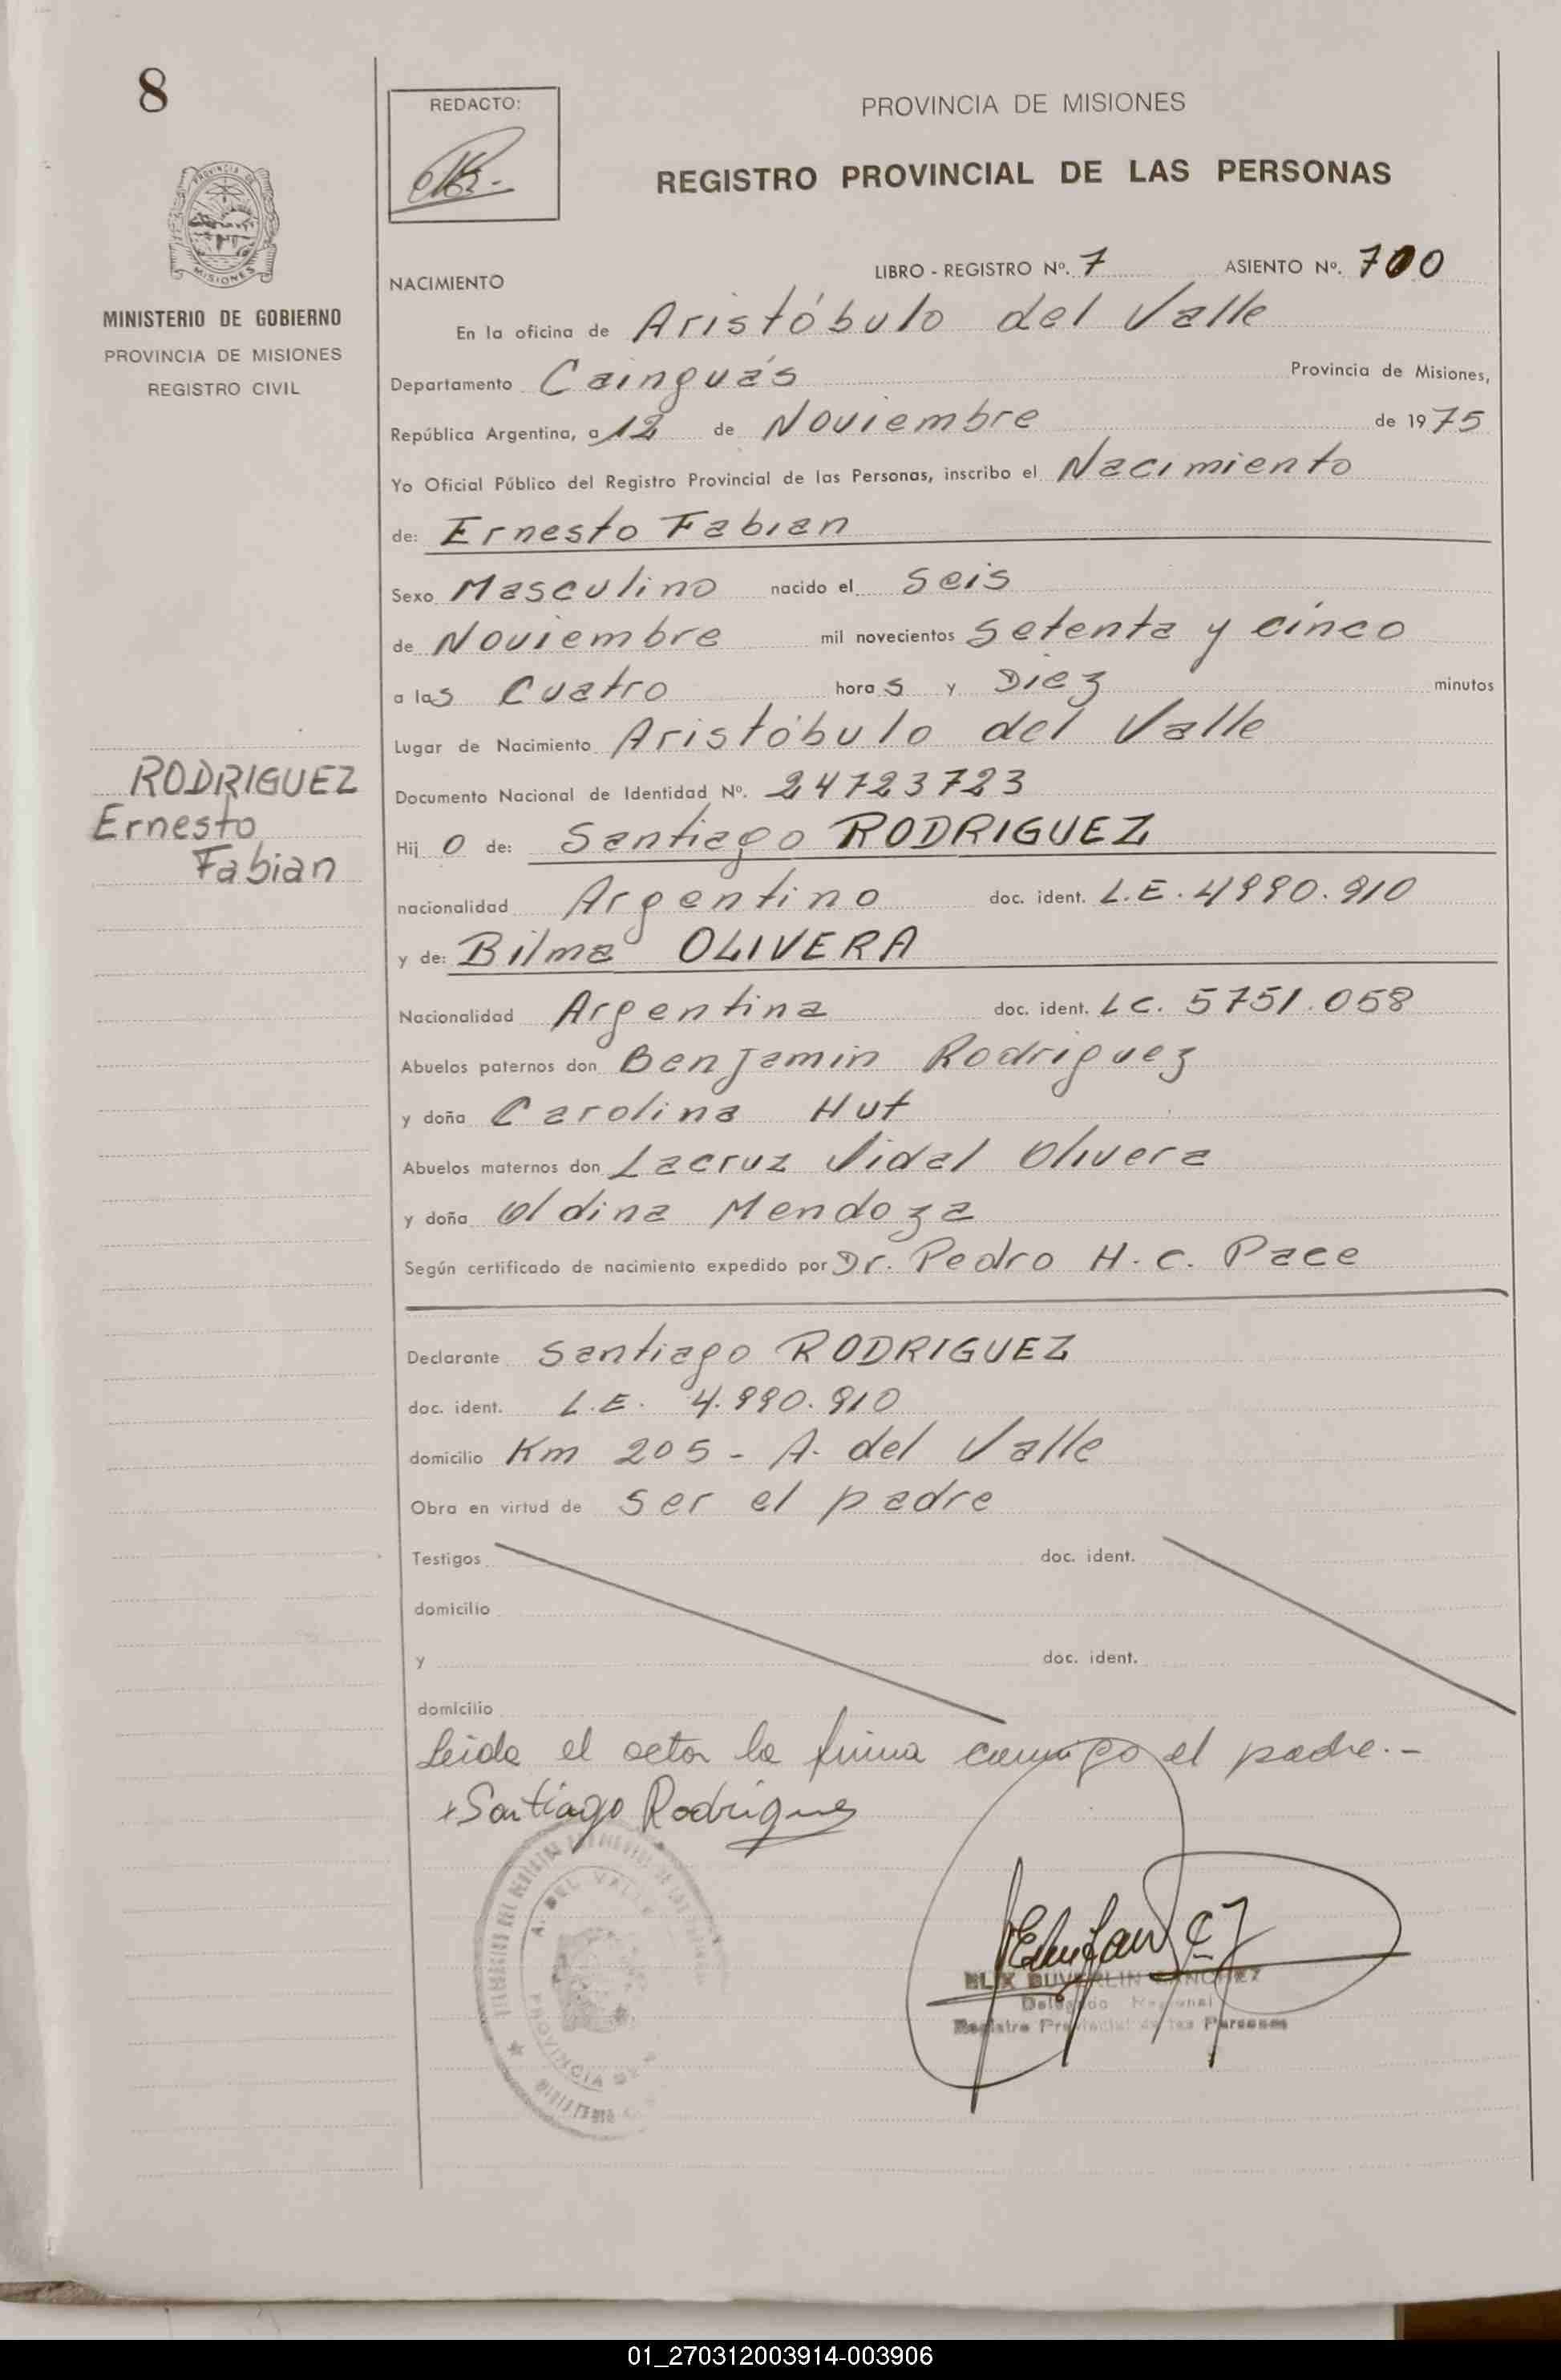 8
REDACTO:
PROVINCIA DE MISIONES
REGISTRO PROVINCIAL DE LAS PERSONAS
PROVINCIA DE
MISIONES
MINISTERIO DE GOBIERNO
PROVINCIA DE MISIONES
REGISTRO CIVIL
NACIMIENTO LIBRO - REGISTRO Nº. 7 ASIENTO Nº. 700
En la oficina de Aristóbulo del Valle
Departamento Cainguás Provincia de Misiones,
República Argentina, a 12 de Noviembre de 1975
Yo Oficial Público del Registro Provincial de las Personas, inscribo el Nacimiento
de: Ernesto Fabian
Sexo Masculino nacido el seis
de Noviembre mil novecientos setenta y cinco
a las cuatro horas y Diez minutos
Lugar de Nacimiento Aristóbulo del Valle
Documento Nacional de Identidad Nº. 24723723
RODRIGUEZ
Ernesto
Fabian
Hijo de: Santiago RODRIGUEZ
nacionalidad Argentino doc. ident. L.E. 4990.910
y de: Bilma OLIVERA
Nacionalidad Argentina doc. ident. LC. 5751.058
Abuelos paternos don Benjamin Rodriguez
y doña Carolina Hut
Abuelos maternos don Lacruz Vidal Olivera
y doña Oldina Mendoza
Según certificado de nacimiento expedido por Dr. Pedro H. C. Pace
Declarante Santiago RODRIGUEZ
doc. ident. L.E. 4.990.910
domicilio Km 205 - A. del Valle
Obra en virtud de ser el padre
Testigos doc. ident.
domicilio
y doc. ident.
domicilio
Leida el acta la firma conmigo el padre.-
Santiago Rodriguez
A. DEL VALLE
PROVINCIA DE
Delegado Regional
Registro Provincial de las Personas
01_270312003914-003906